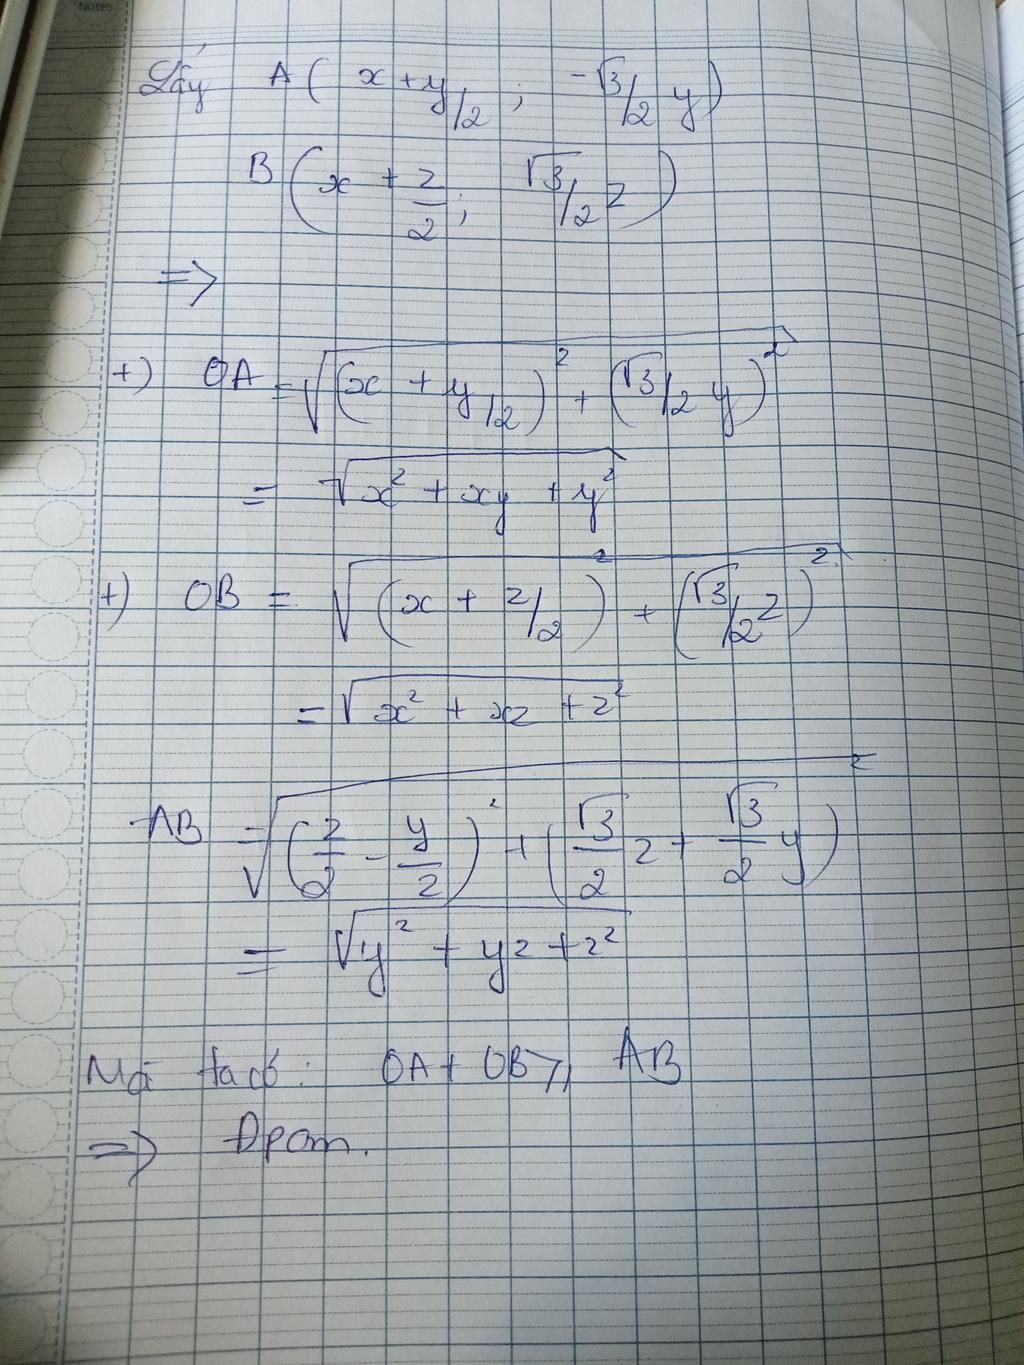 Notes
Lấy A( x + y/2 ; -√3/2 y)
B ( x + z/2 ; √3/2 z )
=>
+) OA = √((x + y/2)² + (√3/2 y)²)
= √(x² + xy + y²)
+) OB = √((x + z/2)² + (√3/2 z)²)
= √(x² + xz + z²)
AB = √((z/2 - y/2)² + (√3/2 z + √3/2 y)²)
= √(y² + yz + z²)
Mà ta có: OA + OB ≥ AB
=> Đpcm.